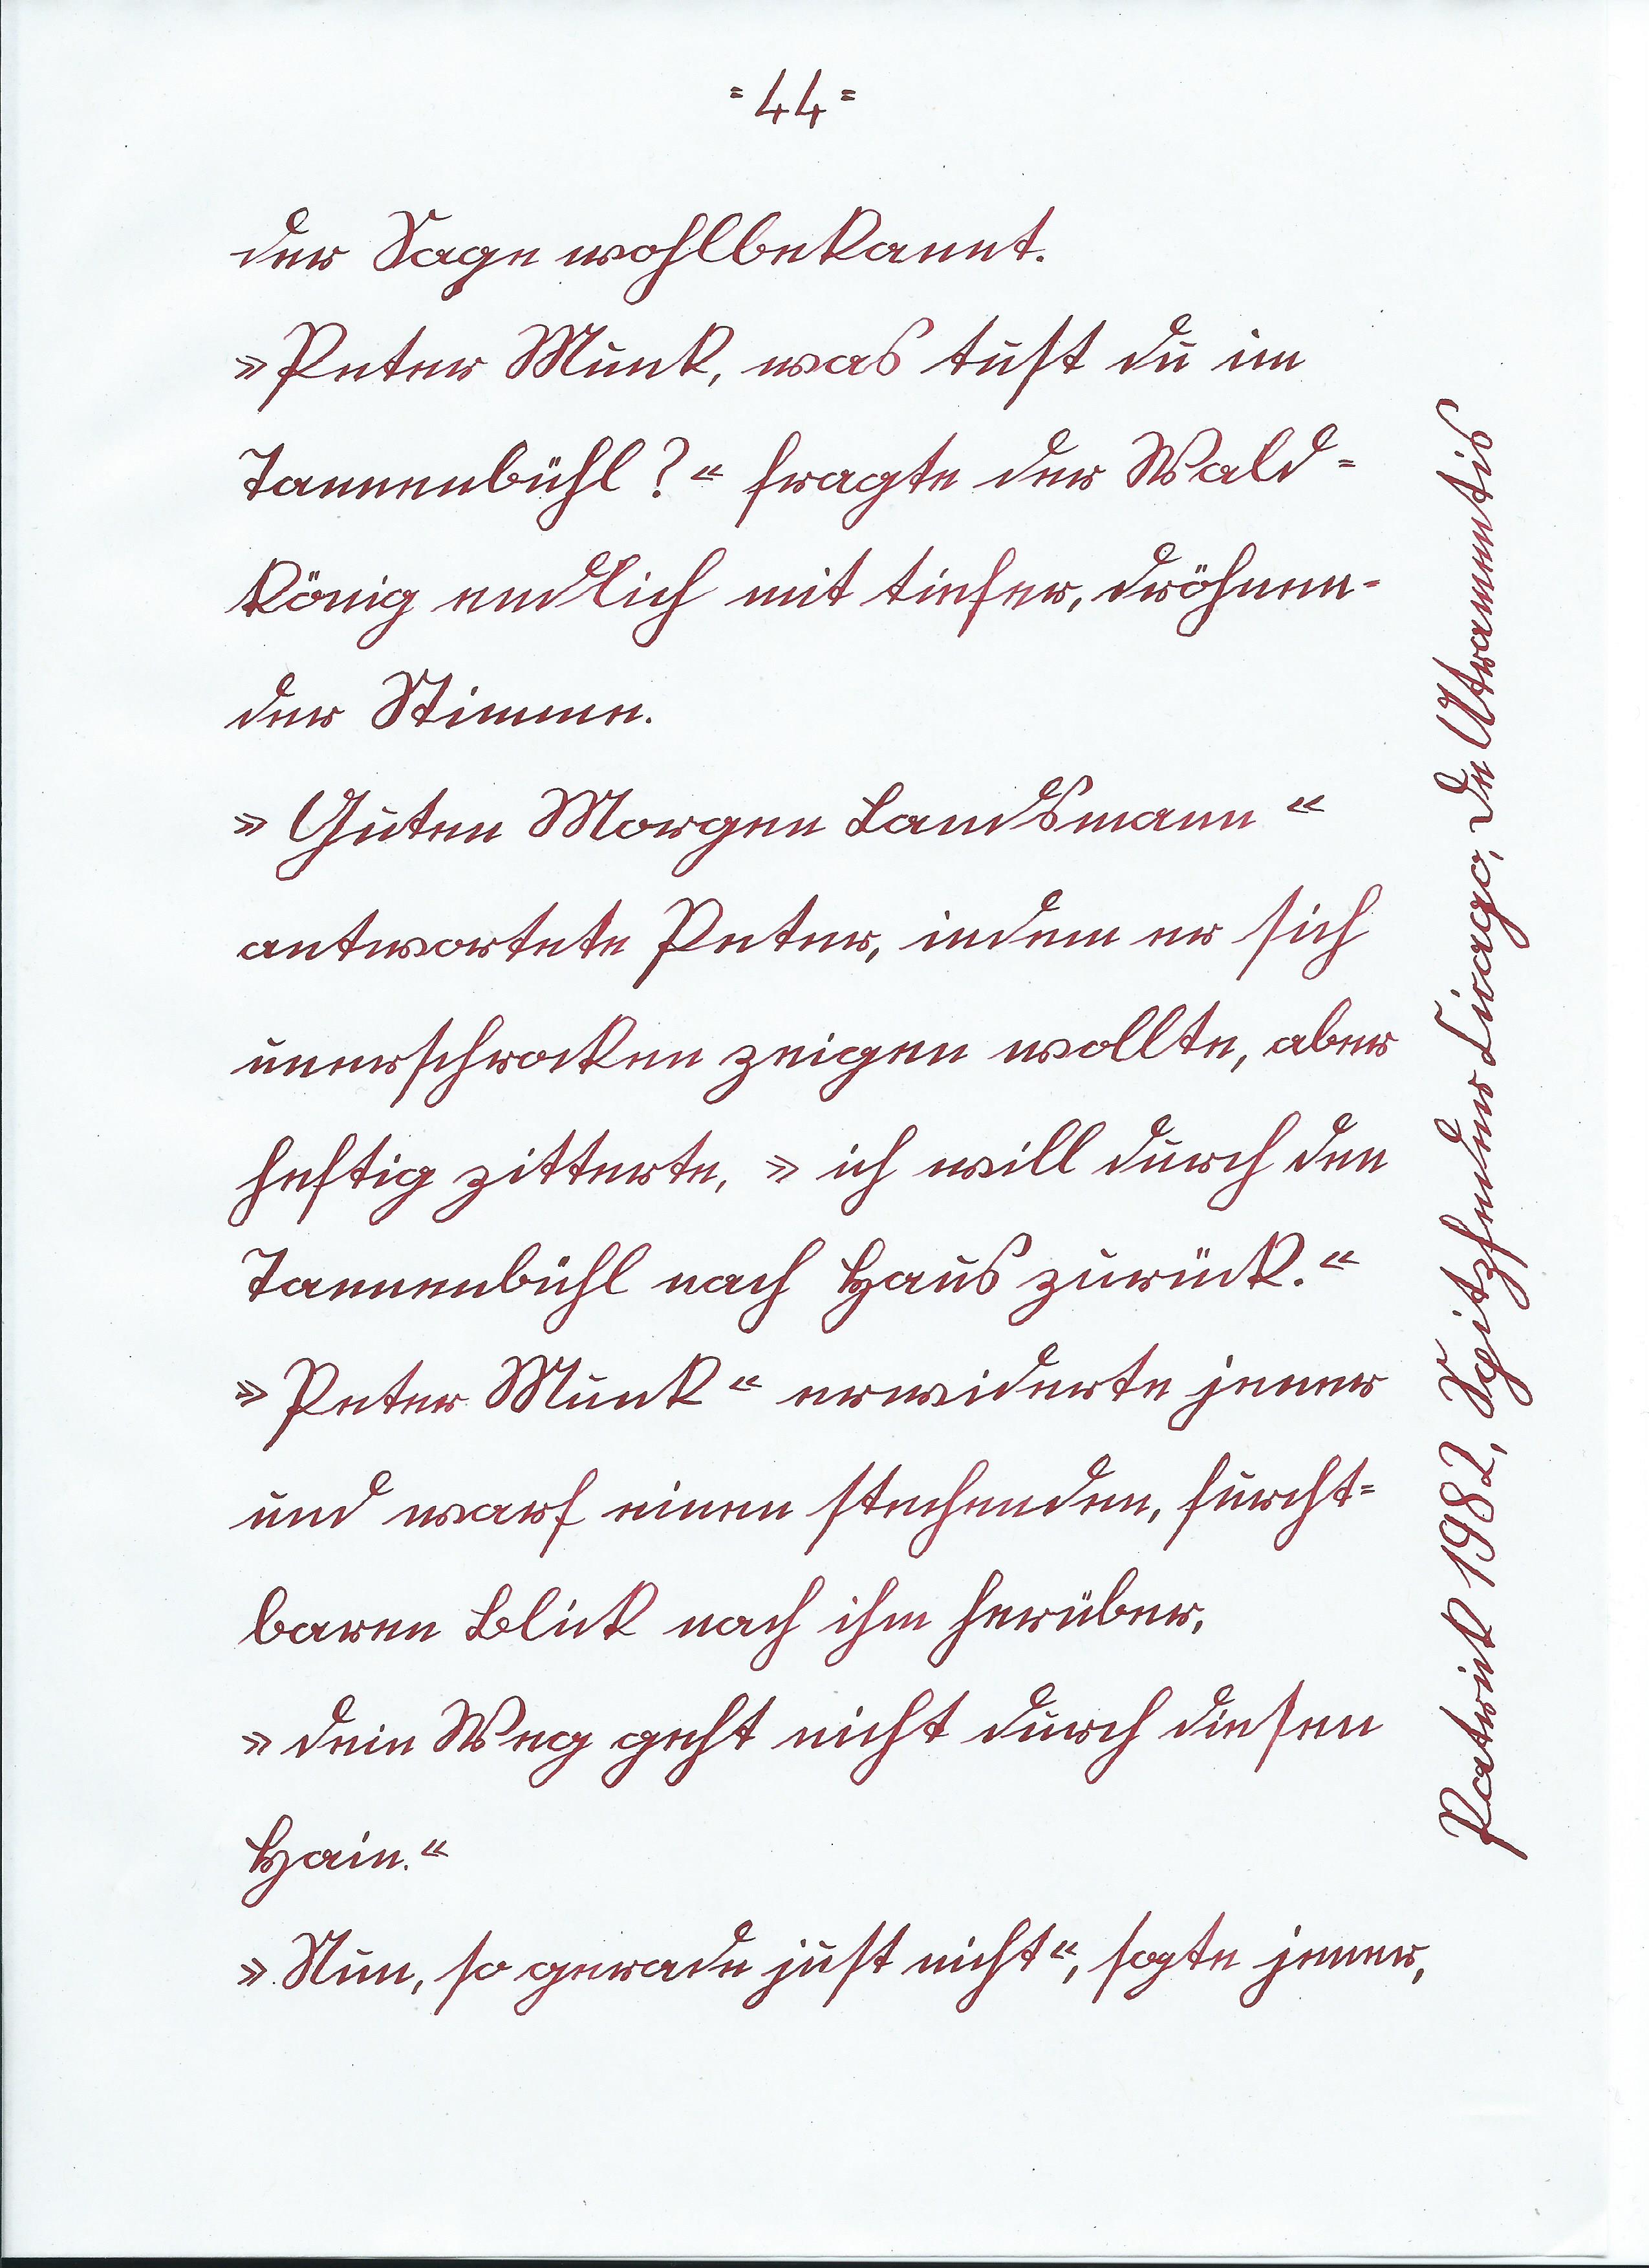 =44=
der Sage wohlbekannt.
»Peter Munk, was tust du im
Tannenbühl?« fragte der Wald=
könig endlich mit tiefer, dröhnen-
der Stimme.
»Guten Morgen Landsmann«
antwortete Peter, indem er sich
unerschrocken zeigen wollte, aber
heftig zitterte, »ich will durch den
Tannenbühl nach Haus zurück.«
»Peter Munk« erwiderte jener
und warf einen stechenden, furcht=
baren Blick nach ihm herüber,
»dein Weg geht nicht durch diesen
Hain.«
»Nun, so gerade just nicht«, sagte jener,
Patrick 1982, Spitzfeder Livago, De Atramentis